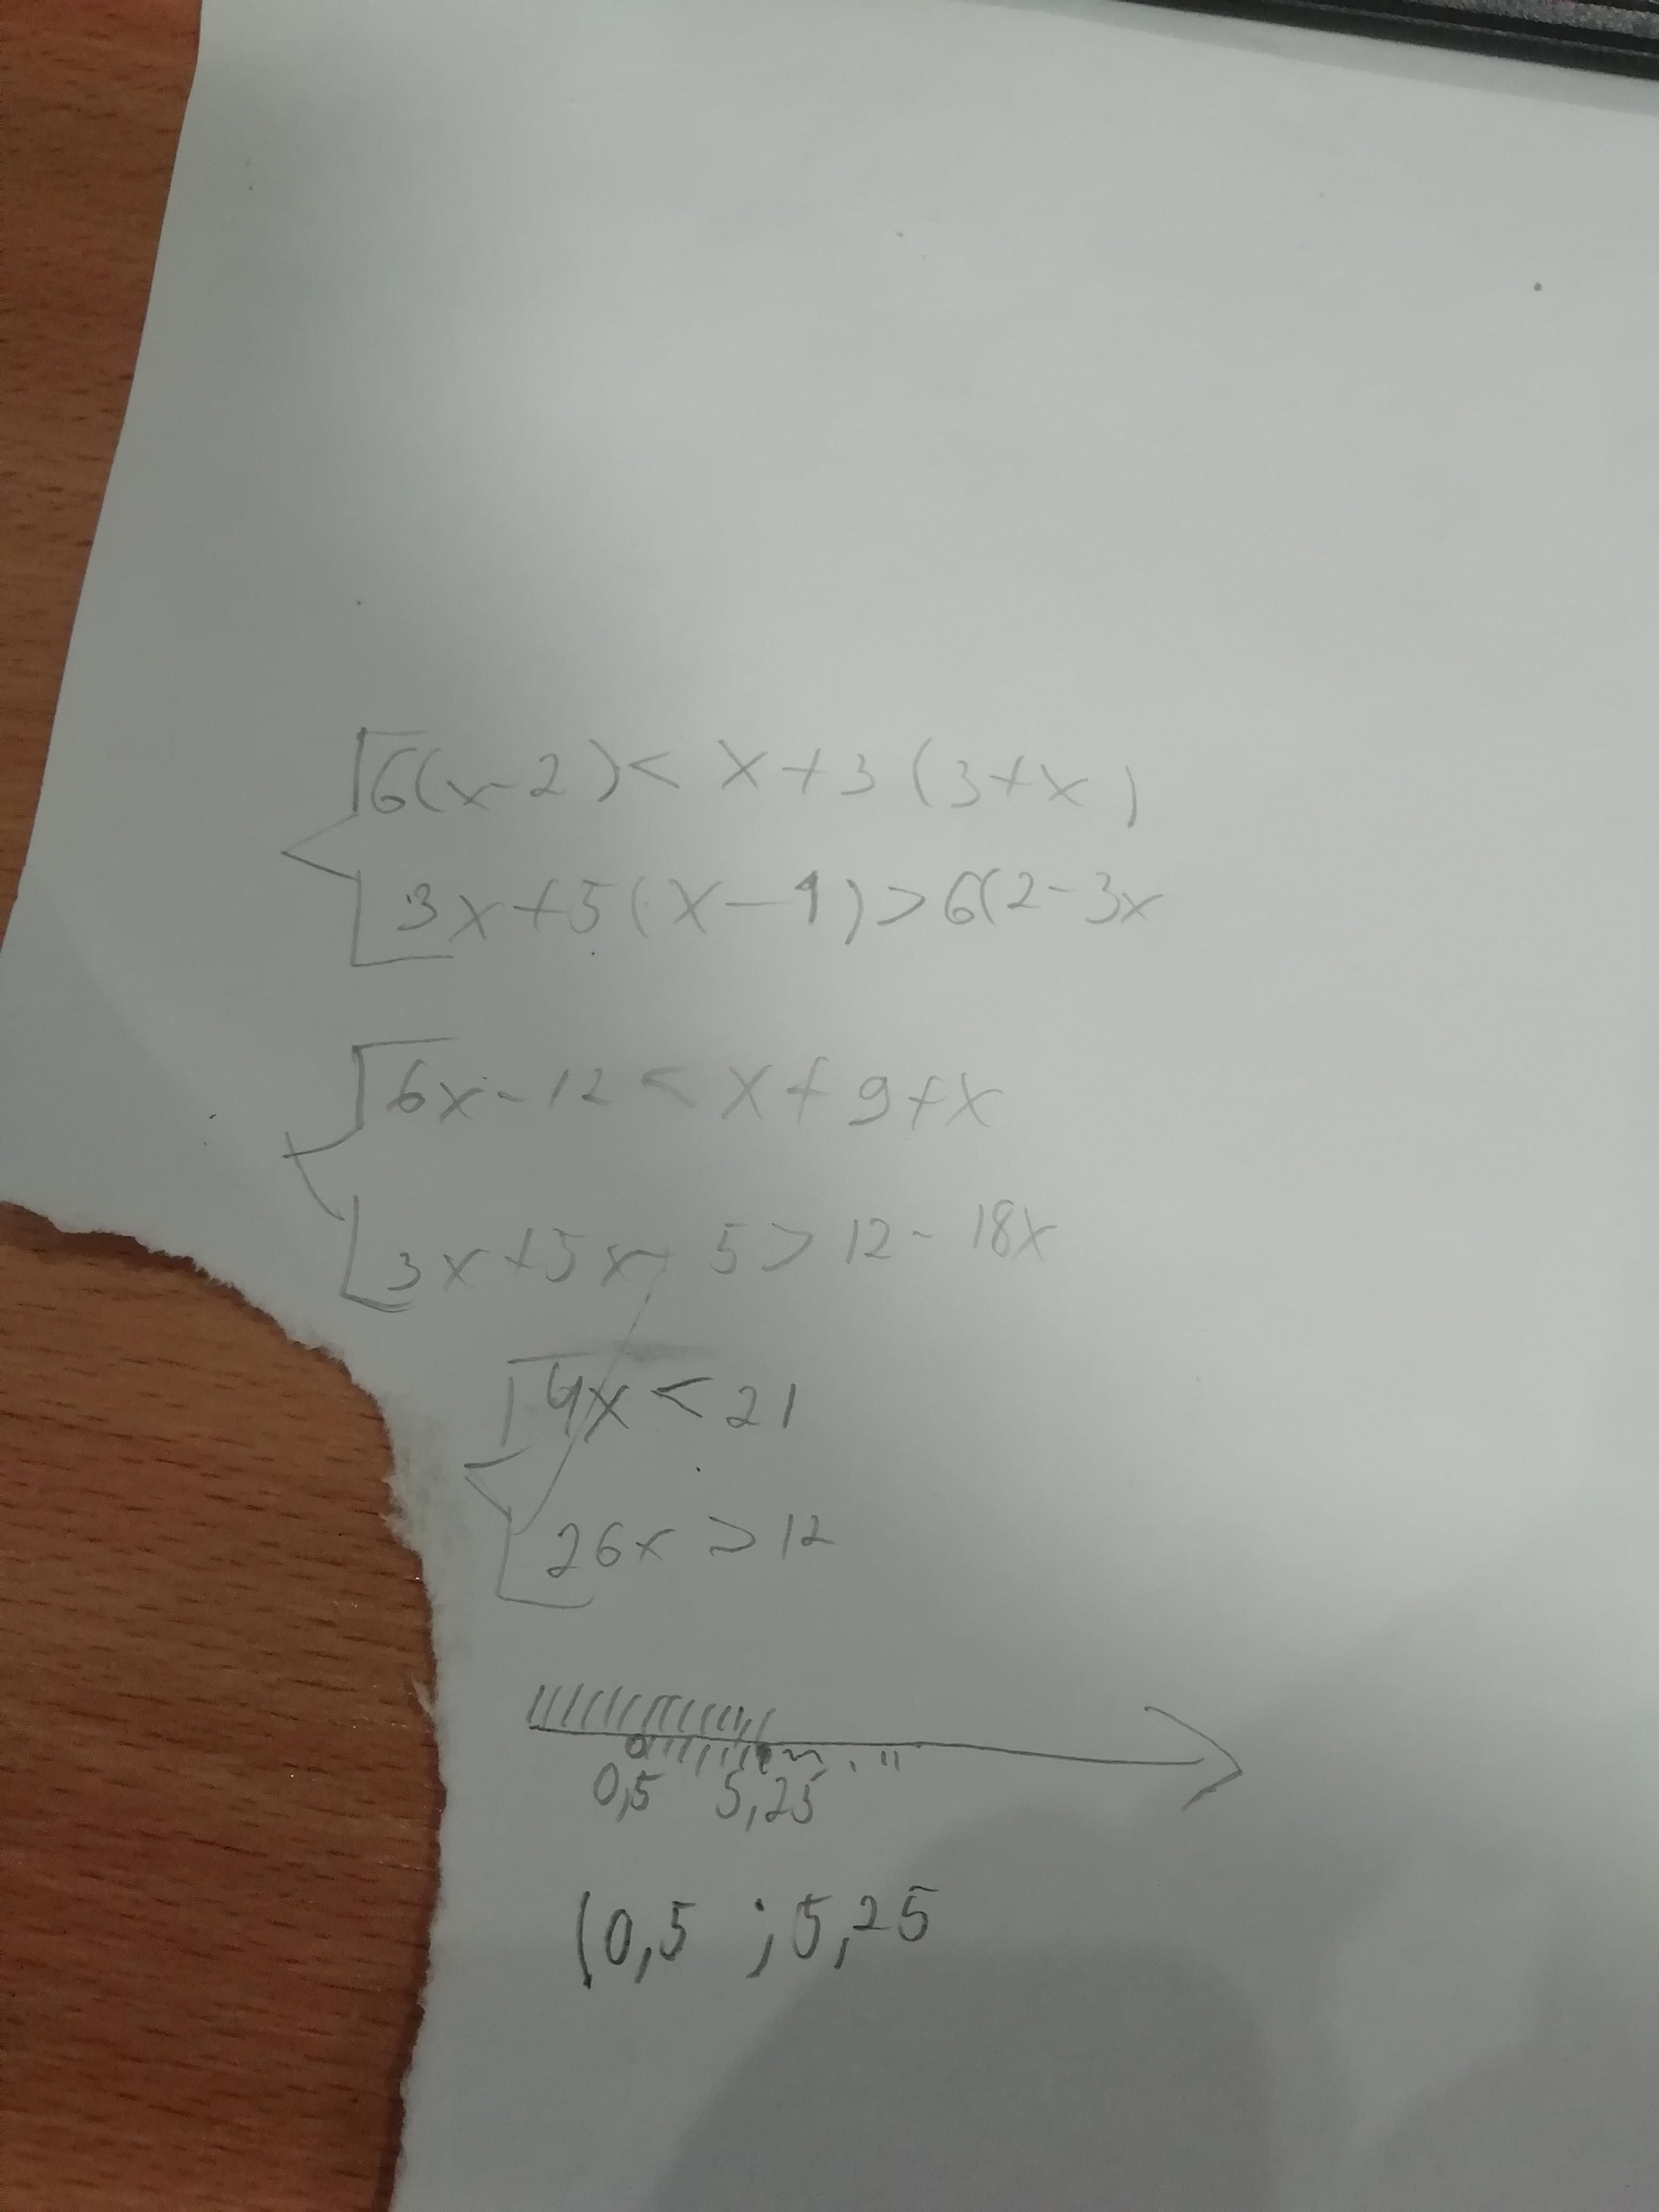 6(x-2)< x+3(3+x)
3x+5(x-1)>6(2-3x
6x-12<x+9+x
3x+5x-5>12-18x
4x<21
26x>12
0,5 5,25
(0,5 ; 5,25